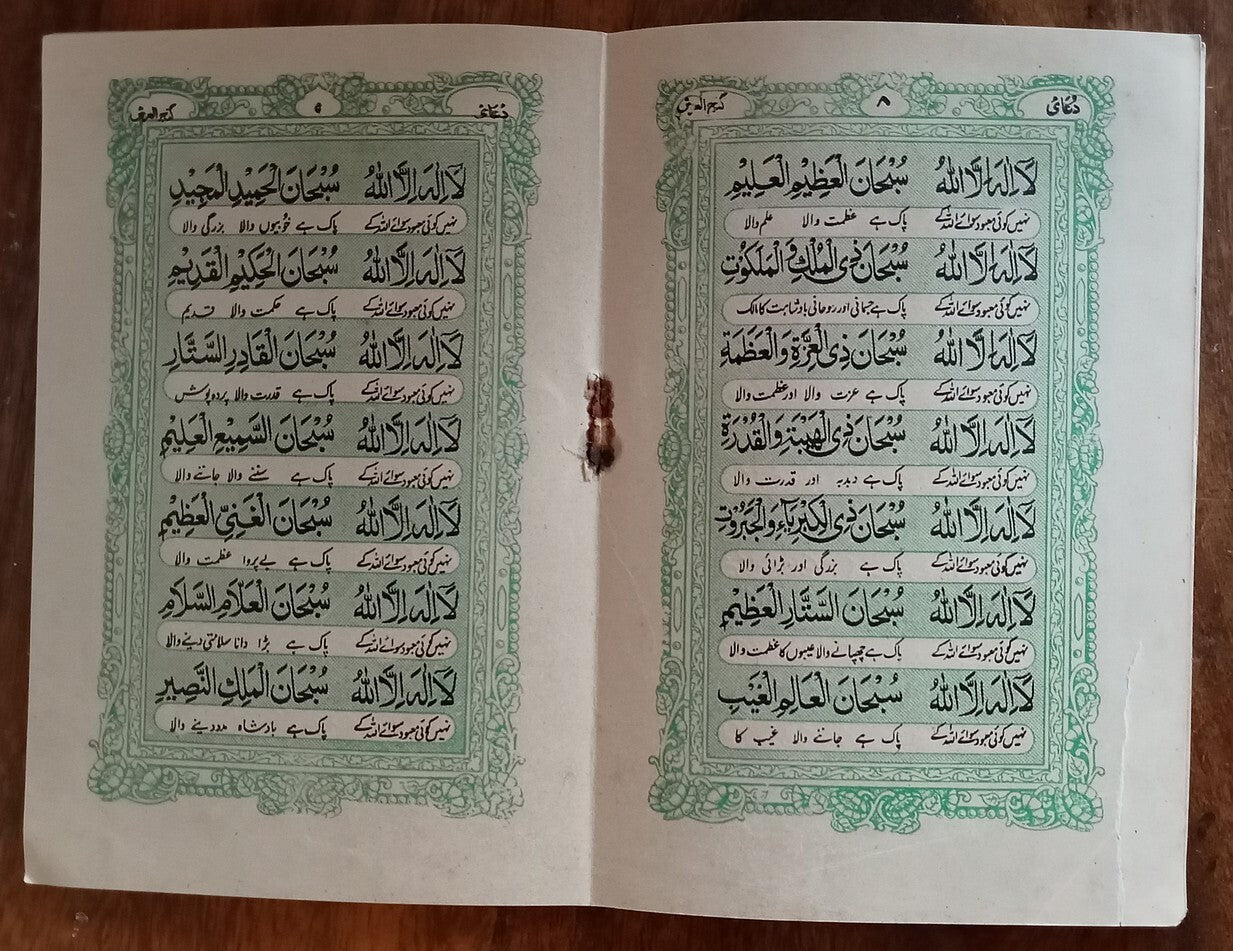 دُعائ ۸ گنج العرش
لَآ اِلٰهَ اِلَّا اللّٰهُ سُبْحَانَ الْعَظِيْمِ الْعَلِيْمِ
نہیں کوئی معبود سوائے اللہ کے پاک ہے عظمت والا علم والا
لَآ اِلٰهَ اِلَّا اللّٰهُ سُبْحَانَ ذِي الْمُلْكِ وَ الْمَلَكُوْتِ
نہیں کوئی معبود سوائے اللہ کے پاک ہے جسمانی اور روحانی بادشاہت کا مالک
لَآ اِلٰهَ اِلَّا اللّٰهُ سُبْحَانَ ذِي الْعِزَّةِ وَالْعَظَمَةِ
نہیں کوئی معبود سوائے اللہ کے پاک ہے عزت والا اور عظمت والا
لَآ اِلٰهَ اِلَّا اللّٰهُ سُبْحَانَ ذِي الْهَيْبَةِ وَالْقُدْرَةِ
نہیں کوئی معبود سوائے اللہ کے پاک ہے دبدبہ اور قدرت والا
لَآ اِلٰهَ اِلَّا اللّٰهُ سُبْحَانَ ذِي الْكِبْرِيَآءِ وَالْجَبَرُوْتِ
نہیں کوئی معبود سوائے اللہ کے پاک ہے بزرگی اور بڑائی والا
لَآ اِلٰهَ اِلَّا اللّٰهُ سُبْحَانَ السَّتَّارِ الْعَظِيْمِ
نہیں کوئی معبود سوائے اللہ کے پاک ہے چھپانے والا عیبوں کا عظمت والا
لَآ اِلٰهَ اِلَّا اللّٰهُ سُبْحَانَ الْعَالِمِ الْغَيْبِ
نہیں کوئی معبود سوائے اللہ کے پاک ہے جاننے والا غیب کا
دُعائ ۹ گنج العرش
لَآ اِلٰهَ اِلَّا اللّٰهُ سُبْحَانَ الْحَمِيْدِ الْمَجِيْدِ
نہیں کوئی معبود سوائے اللہ کے پاک ہے خوبیوں والا بزرگی والا
لَآ اِلٰهَ اِلَّا اللّٰهُ سُبْحَانَ الْحَكِيْمِ الْقَدِيْمِ
نہیں کوئی معبود سوائے اللہ کے پاک ہے حکمت والا قدیم
لَآ اِلٰهَ اِلَّا اللّٰهُ سُبْحَانَ الْقَادِرِ السَّتَّارِ
نہیں کوئی معبود سوائے اللہ کے پاک ہے قدرت والا پردہ پوش
لَآ اِلٰهَ اِلَّا اللّٰهُ سُبْحَانَ السَّمِيْعِ الْعَلِيْمِ
نہیں کوئی معبود سوائے اللہ کے پاک ہے سننے والا جاننے والا
لَآ اِلٰهَ اِلَّا اللّٰهُ سُبْحَانَ الْغَنِيِّ الْعَظِيْمِ
نہیں کوئی معبود سوائے اللہ کے پاک ہے بے پروا عظمت والا
لَآ اِلٰهَ اِلَّا اللّٰهُ سُبْحَانَ الْعَلَّامِ السَّلَامِ
نہیں کوئی معبود سوائے اللہ کے پاک ہے بڑا دانا سلامتی دینے والا
لَآ اِلٰهَ اِلَّا اللّٰهُ سُبْحَانَ الْمَلِكِ النَّصِيْرِ
نہیں کوئی معبود سوائے اللہ کے پاک ہے بادشاہ مدد دینے والا